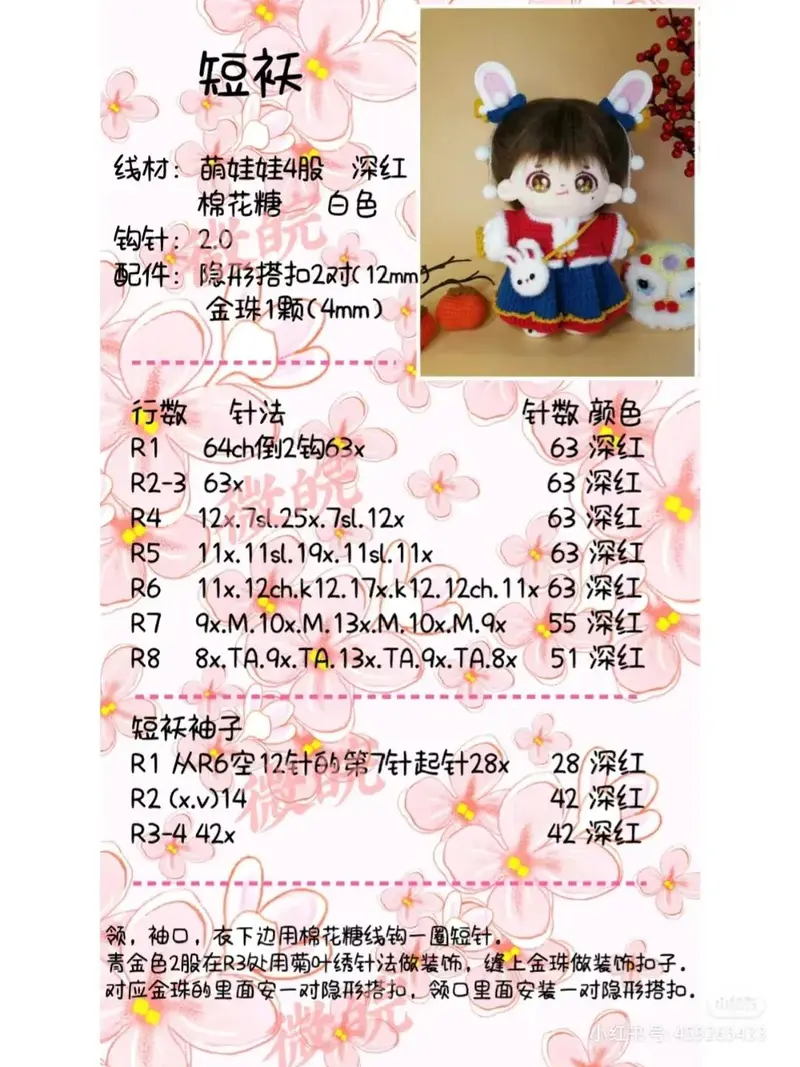 短袄
线材：萌娃娃4股 深红
棉花糖 白色
钩针：2.0
配件：隐形搭扣2对(12mm)
金珠1颗(4mm)
行数 针法 针数 颜色
R1 64ch倒2钩63x 63 深红
R2-3 63x 63 深红
R4 12x.7sl.25x.7sl.12x 63 深红
R5 11x.11sl.19x.11sl.11x 63 深红
R6 11x.12ch.k12.17x.k12.12ch.11x 63 深红
R7 9x.M.10x.M.13x.M.10x.M.9x 55 深红
R8 8x.TA.9x.TA.13x.TA.9x.TA.8x 51 深红
短袄袖子
R1 从R6空12针的第7针起针28x 28 深红
R2 (x.v)14 42 深红
R3-4 42x 42 深红
领，袖口，衣下边用棉花糖线钩一圈短针.
青金色2股在R3处用菊叶绣针法做装饰，缝上金珠做装饰扣子.
对应金珠的里面安一对隐形搭扣，领口里面安装一对隐形搭扣.
微皖
微皖
微皖
微皖
小红书
小红书号